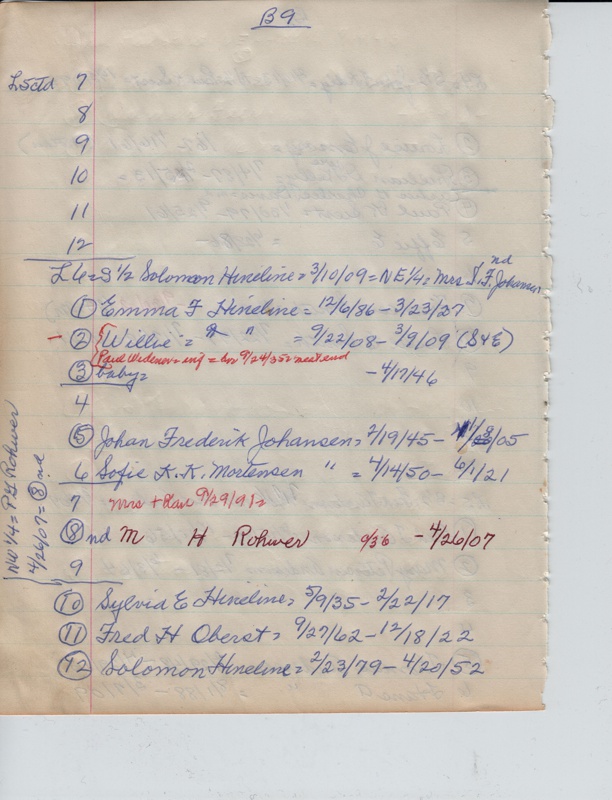 B9
L5ctd 7
8
9
10
11
12
L6 = S 1/2 Solomon Hineline = 3/10/09 = NE 1/4 = Mrs J. F. Johansen nd
① Emma F Hineline = 12/6/86 - 3/23/27
- ② Willie = " " = 9/22/08 - 3/9/09 (S4E)
Paul Widener = inf = bur 9/24/35 = nest end
③ baby = - 4/17/46
4
⑤ Johan Frederik Johansen = 2/19/45 - /05
6 Sofie K. K. Mortensen " = 4/14/50 - 6/1/21
7 Mrs 9/29/91 =
⑧ nd M H Rohwer 9/36 - 4/26/07
9
⑩ Sylvia E Hineline = 5/9/35 - 2/22/17
⑪ Fred H Oberst = 9/27/62 - 12/18/22
⑫ Solomon Hineline = 2/23/79 - 4/20/52
NW 1/4 = P H Rohwer
4/26/07 = ⑧ nd